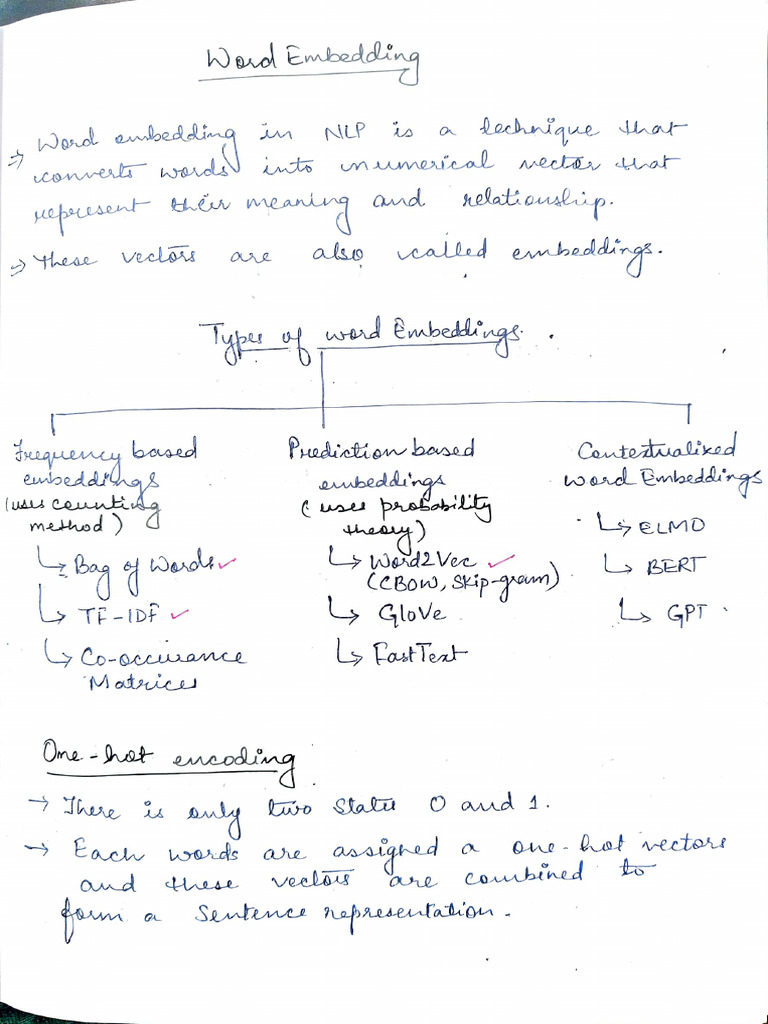 Word Embedding
→ Word embedding in NLP is a technique that
converts words into numerical vector that
represent their meaning and relationship.
→ These vectors are also called embeddings.
Types of word Embeddings.
Frequency based
embeddings
(uses counting
method)
↳ Bag of Words ✓
↳ TF-IDF ✓
↳ Co-occurance
Matrices
Prediction based
embeddings
(uses probability
theory)
↳ Word2Vec ✓
(CBOW, Skip-gram)
↳ GloVe
↳ FastText
Contextualized
word Embeddings
↳ ELMO
↳ BERT
↳ GPT
One-hot encoding
→ There is only two state 0 and 1.
→ Each words are assigned a one-hot vectors
and these vectors are combined to
form a sentence representation.